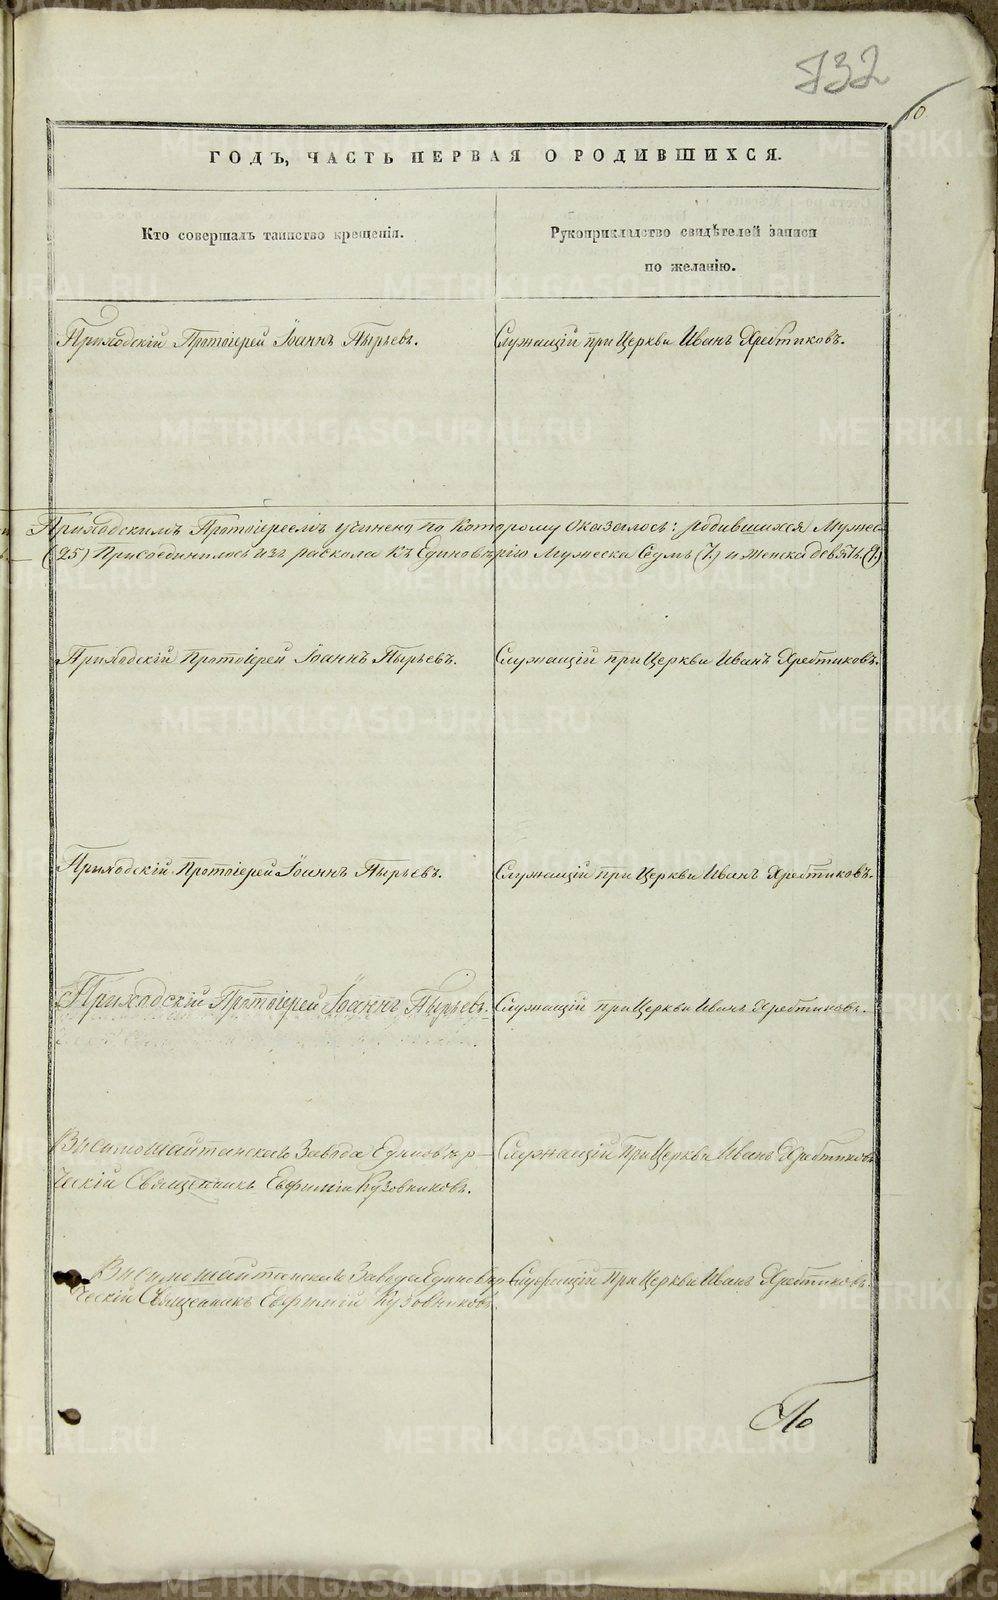 732
10
ГОДЪ, ЧАСТЬ ПЕРВАЯ О РОДИВШИХСЯ.
Кто совершалъ таинство крещенія.
Рукоприкладство свидѣтелей записи
по желанію.
Приходскій Протоіерей Іоаннъ Пырьевъ.
Служащій при Церкви Иванъ Хребтиковъ.
Приходскимъ Протоіереемъ учинена по Которому Оказалось: родившихся Мужес-
(25) Присоединилось изъ раскола къ Единовѣрію Мужеска Седмь (7.) и женска девять (9.)
Приходскій Протоіерей Іоаннъ Пырьевъ.
Служащій при Церкви Иванъ Хребтиковъ.
Приходскій Протоіерей Іоаннъ Пырьевъ.
Служащій при Церкви Иванъ Хребтиковъ.
Приходскій Протоіерей Іоаннъ Пырьевъ.
Служащій при Церкви Иванъ Хребтиковъ.
Висимошайтанскаго Завода Единовѣр-
ческій Священникъ Евфимій Кузовниковъ.
Служащій при Церкви Иванъ Хребтиковъ
Висимошайтанскаго Завода Единовѣр-
ческій Священникъ Евфимій Кузовниковъ.
Служащій при Церкви Иванъ Хребтиковъ.
По
METRIKI.GASO-URAL.RU